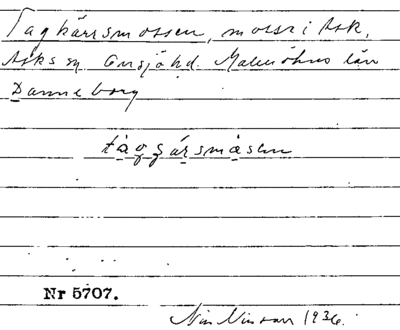 Tagkärrsmossen, mosse i Ask,
Asks sn Onsjö hd. Malmöhus län
Danneborg
tagʒársmåsen
Nr 5707.
Nils Nilsson 1936.